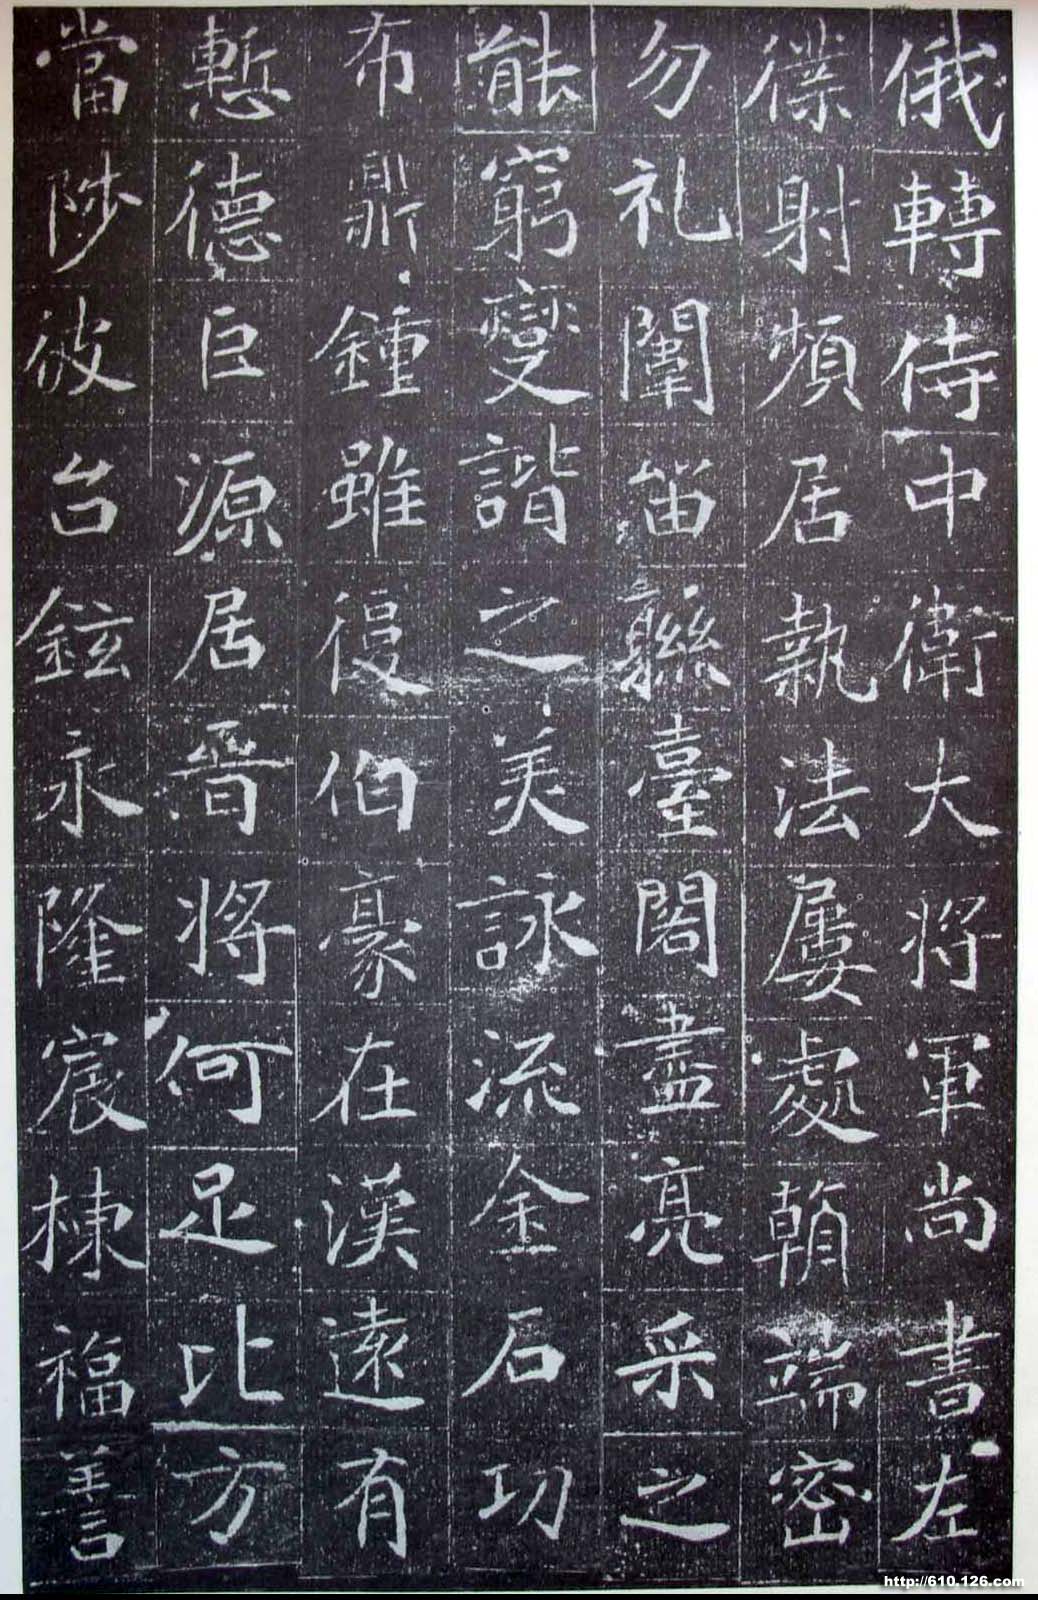 俄轉侍中衛大將軍尚書左
僕射頻居執法屢處朝端密
勿礼闈笛聮臺閣盡亮采之
能窮變諧之美詠流金石功
布鼎鍾雖復伯豪在漢遠有
慙德巨源居晉將何足比方
當陟彼台鉉永隆宸棟福善
http://610.126.com